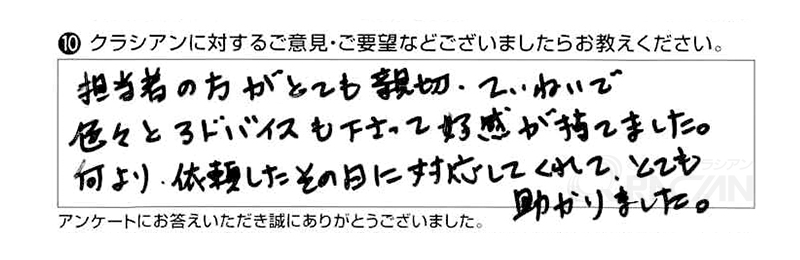 ⑩ クラシアンに対するご意見・ご要望などございましたらお教えください。
担当者の方がとても親切・ていねいで
色々とアドバイスも下さって好感が持てました。
何より、依頼したその日に対応してくれて、とても
助かりました。
アンケートにお答えいただき誠にありがとうございました。